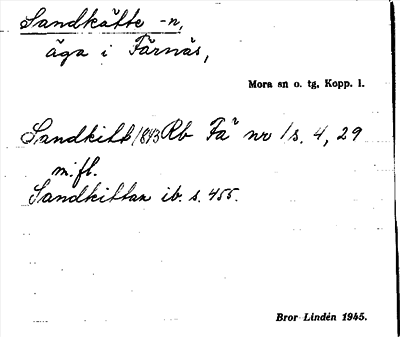 Sandkätte -n,
äga i Färnäs,
Mora sn o. tg, Kopp. l.
Sandkitt 1843 Rb Fä nr 1 s. 4, 29
m.fl.
Sandkittan ib. s. 455.
Bror Lindén 1945.